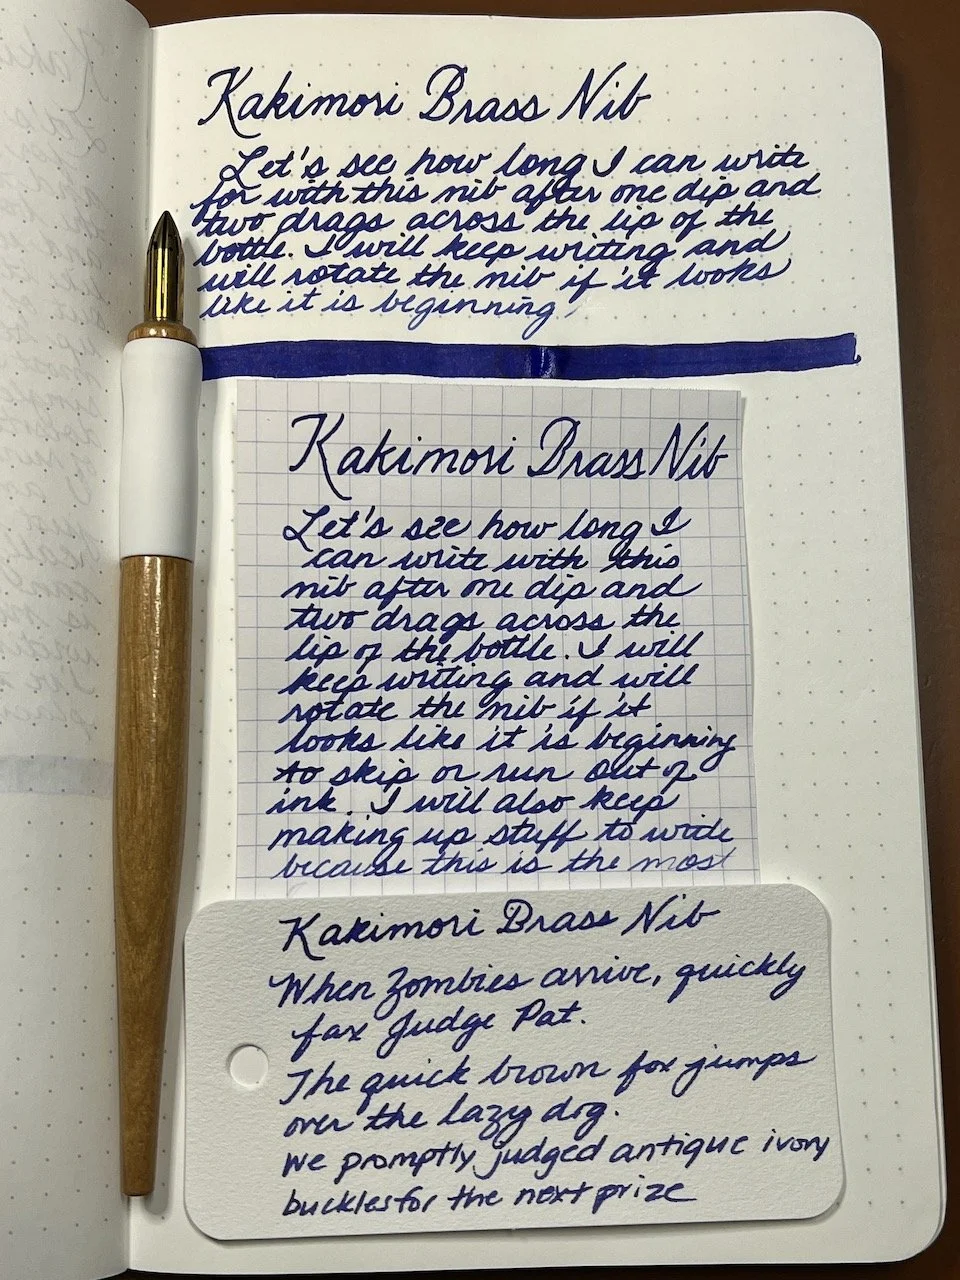 Kakimori Brass Nib
Let's see how long I can write
for with this nib after one dip and
two drags across the lip of the
bottle. I will keep writing and
will rotate the nib if it looks
like it is beginning
Kakimori Brass Nib
Let's see how long I
can write with this
nib after one dip and
two drags across the
lip of the bottle. I will
keep writing and will
rotate the nib if it
looks like it is beginning
to skip or run out of
ink. I will also keep
making up stuff to write
because this is the most
Kakimori Brass Nib
When Zombies arrive, quickly
fax Judge Pat.
The quick brown fox jumps
over the lazy dog.
We promptly judged antique ivory
buckles for the next prize